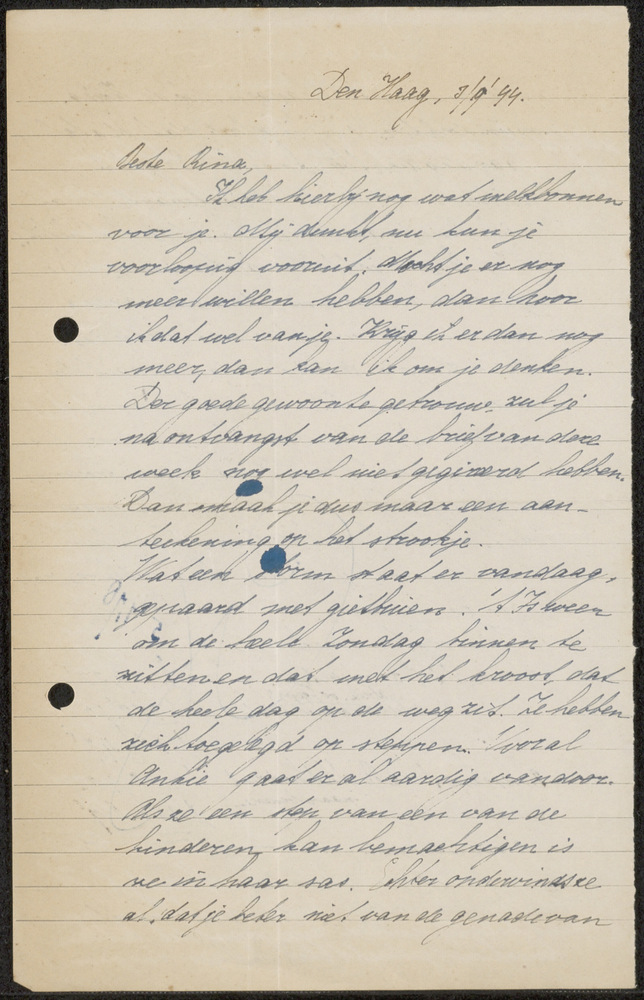 Den Haag, 3/9'44.
Beste Rina,
Ik heb hierbij nog wat melkbonnen
voor je. Mij dunkt, nu kun je
voorloopig vooruit. Mocht je er nog
meer willen hebben, dan hoor
ik dat wel van je. Krijg ik er dan nog
meer, dan kan ik om je denken.
Der goede gewoonte getrouw, zul je
na ontvangst van de brief van deze
week nog wel niet gegireerd hebben.
Dan maak je dus maar een aan-
teekening op het strookje.
Wat een storm staat er vandaag,
gepaard met gietbuien. 't Is weer
om de heele Zondag binnen te
zitten en dat met het kroost, dat
de heele dag op de weg zit. Ze hebben
zich toegelegd op steppen. Vooral
Ankie gaat er al aardig vandoor.
Als ze een step van een van de
kinderen kan bemachtigen is
ze in haar sas. Echter ondervindt ze
al, dat je beter niet van de genade van